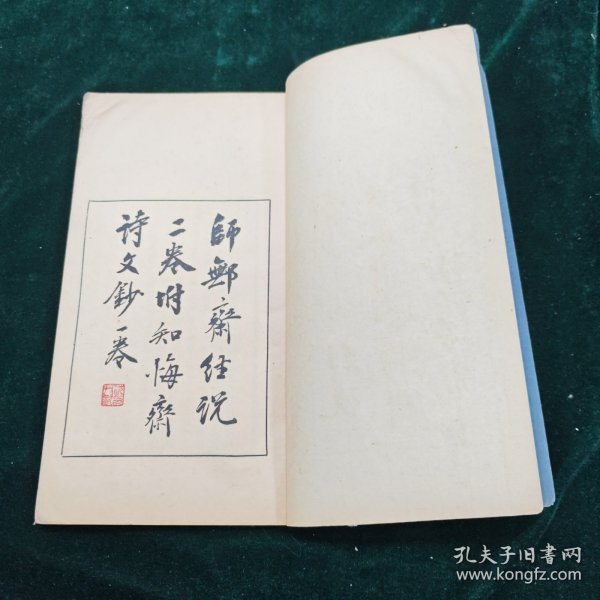 師鄭齋經说
二卷附知悔齋
詩文鈔一卷
孔夫子旧书网
www.kongfz.com